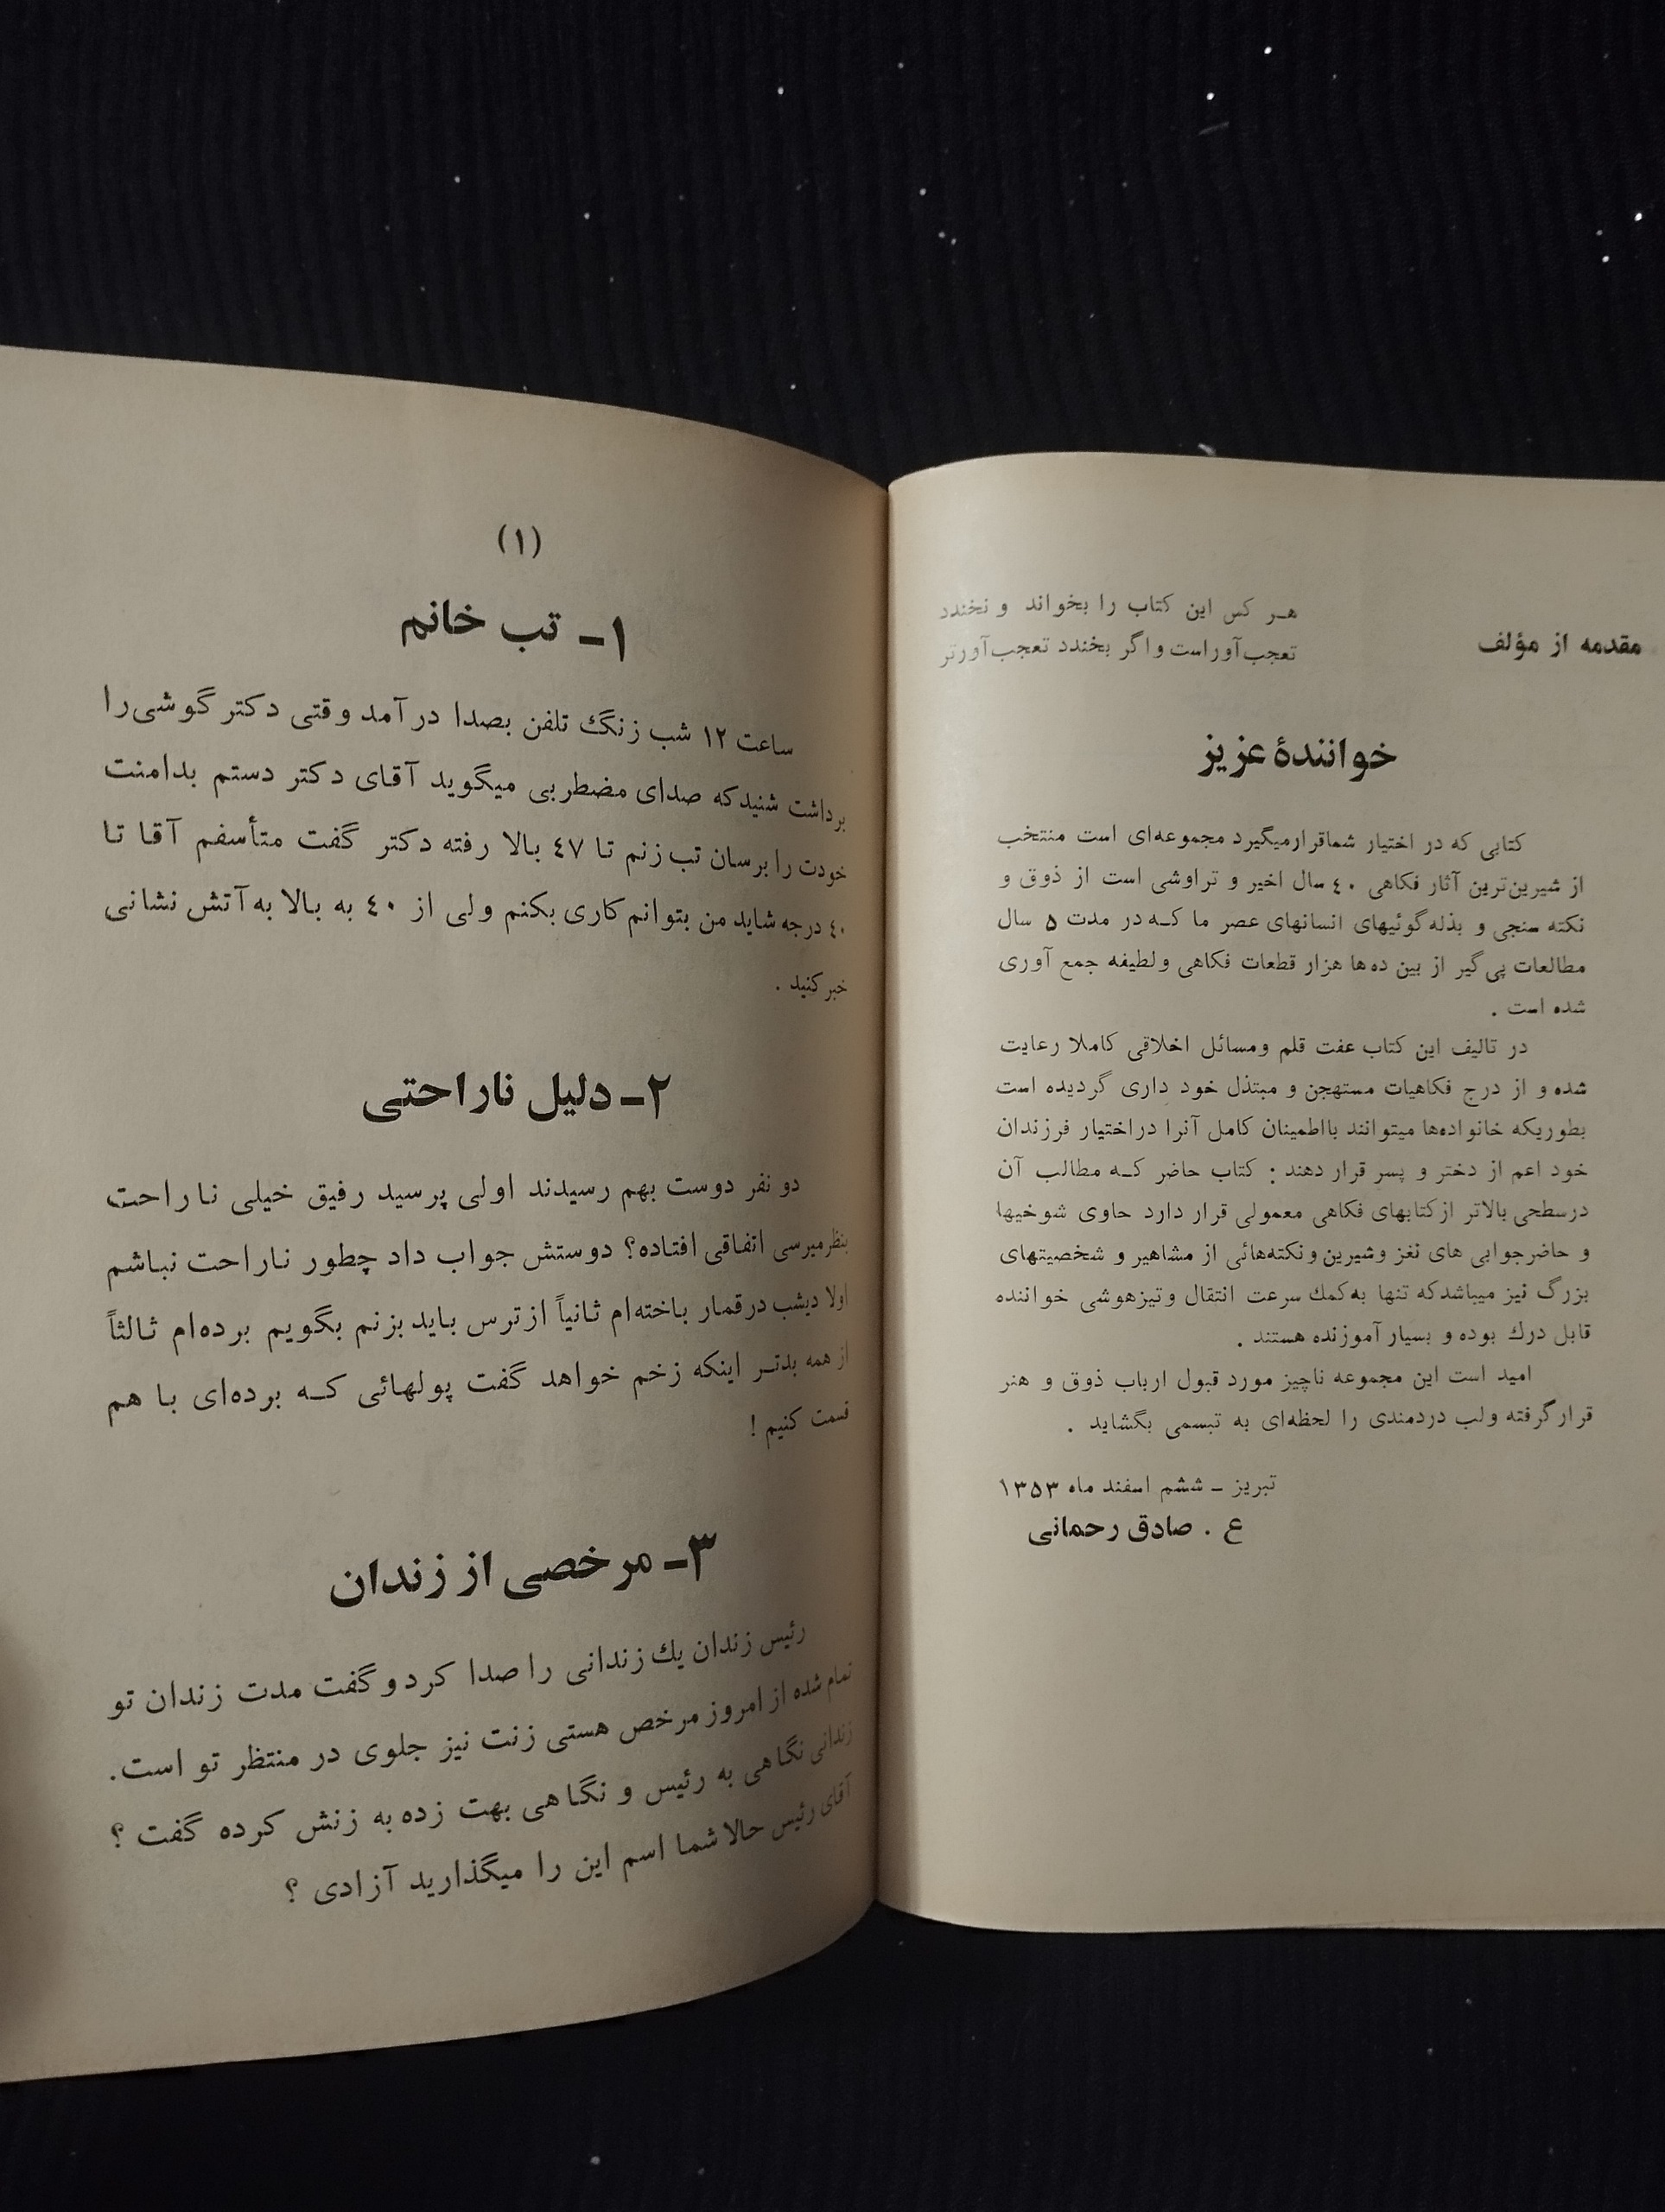 مقدمه از مؤلف
هـر کس این کتاب را بخواند و نخندد
تعجب‌آوراست واگر بخندد تعجب‌آورتر
خوانندهٔ عزیز
کتابی که در اختیار شماقرارمیگیرد مجموعه‌ای است منتخب
از شیرین‌ترین آثار فکاهی ٤٠ سال اخیر و تراوشی است از ذوق و
نکته سنجی و بذله گوئیهای انسانهای عصر ما کـه در مدت ۵ سال
مطالعات پی‌گیر از بین ده‌ها هزار قطعات فکاهی ولطیفه جمع آوری
شده است .
در تالیف این کتاب عفت قلم ومسائل اخلاقی کاملا رعایت
شده و از درج فکاهیات مستهجن و مبتذل خود داری گردیده است
بطوریکه خانواده‌ها میتوانند بااطمینان کامل آنرا دراختیار فرزندان
خود اعم از دختر و پسر قرار دهند : کتاب حاضر کـه مطالب آن
درسطحی بالاتر ازکتابهای فکاهی معمولی قرار دارد حاوی شوخیها
و حاضرجوابی های نغز وشیرین ونکته‌هائی از مشاهیر و شخصیتهای
بزرگ نیز میباشدکه تنها به‌کمك سرعت انتقال وتیزهوشی خواننده
قابل درك بوده و بسیار آموزنده هستند .
امید است این مجموعه ناچیز مورد قبول ارباب ذوق و هنر
قرارگرفته ولب دردمندی را لحظه‌ای به تبسمی بگشاید .
تبریز ـ ششم اسفند ماه ۱۳۵۳
ع . صادق رحمانی
(۱)
۱ـ تب خانم
ساعت ۱۲ شب زنگ تلفن بصدا درآمد وقتی دکتر گوشی‌را
برداشت شنیدکه صدای مضطربی میگوید آقای دکتر دستم بدامنت
خودت را برسان تب زنم تا ٤۷ بالا رفته دکتر گفت متأسفم آقا تا
٤۰ درجه شاید من بتوانم کاری بکنم ولی از ٤۰ به بالا به آتش نشانی
خبرکنید .
۲ـ دلیل ناراحتی
دو نفر دوست بهم رسیدند اولی پرسید رفیق خیلی ناراحت
بنظرمیرسی اتفاقی افتاده؟ دوستش جواب داد چطور ناراحت نباشم
اولا دیشب درقمار باخته‌ام ثانیاً ازترس باید بزنم بگویم برده‌ام ثالثاً
از همه بدتـر اینکه زخم خواهد گفت پولهائی کـه برده‌ای با هم
قسمت کنیم !
۳ـ مرخصی از زندان
رئیس زندان یك زندانی را صدا کرد و گفت مدت زندان تو
تمام شده از امروز مرخص هستی زنت نیز جلوی در منتظر تو است.
زندانی نگاهی به رئیس و نگاهی بهت زده به زنش کرده گفت ؟
آقای رئیس حالا شما اسم این را میگذارید آزادی ؟